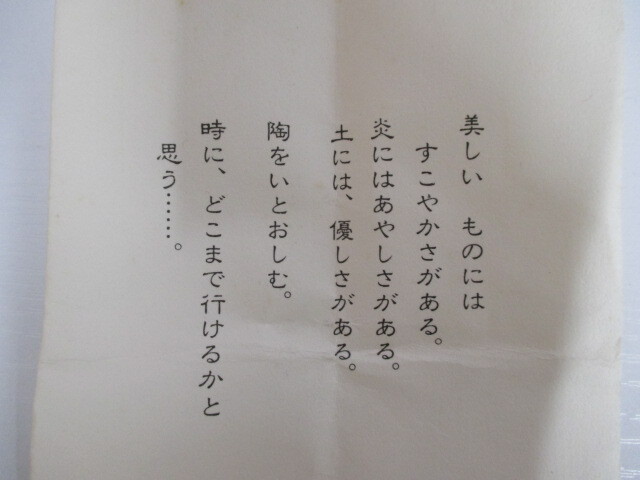 美しい　ものには
すこやかさがある。
炎にはあやしさがある。
土には、優しさがある。
陶をいとおしむ。
時に、どこまで行けるかと
思う……。